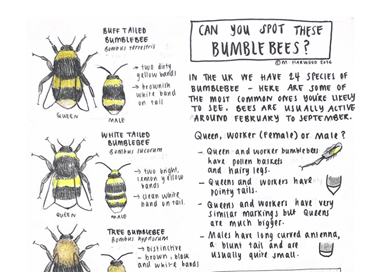 BUFF TAILED
BUMBLEBEE
Bombus terrestris
→ two dirty
yellow bands
→ brownish
white band
on tail
QUEEN
MALE
WHITE TAILED
BUMBLEBEE
Bombus lucorum
→ two bright,
lemon yellow
bands
→ clean white
band on tail.
QUEEN
MALE
TREE BUMBLEBEE
Bombus hypnorum
→ Distinctive
- brown, black
and white bands
CAN YOU SPOT THESE
BUMBLEBEES?
© M. HARWOOD 2016
IN THE UK WE HAVE 24 SPECIES OF
BUMBLEBEE - HERE ARE SOME OF
THE MOST COMMON ONES YOU'RE LIKELY
TO SEE. BEES ARE USUALLY ACTIVE
AROUND FEBRUARY TO SEPTEMBER.
Queen, worker (female) or Male?
- Queen and worker bumblebees
have pollen baskets
and hairy legs.
- Queens and workers have
pointy tails.
- Queens and workers have very
similar markings but Queens
are much bigger.
- Males have long curved antenna,
a blunt tail and are
usually quite small.